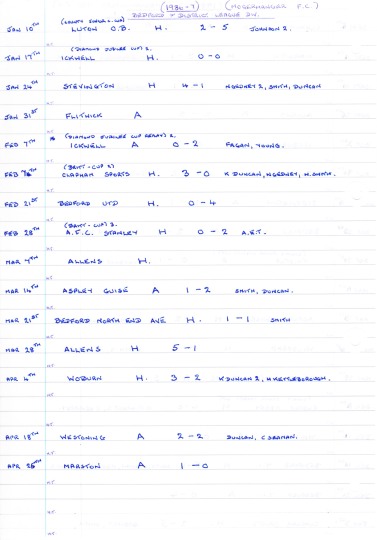 (1986-7) (MOGERHANGER F.C.)
BEDFORD & DISTRICT LEAGUE D4.
(COUNTY JUNIOR CUP)
JAN 10TH LUTON O.B. H. 2 - 5 JOHNSON 2.
(DIAMOND JUBILEE CUP) 2.
JAN 17TH ICKWELL H. 0 - 0
JAN 24TH STEVINGTON H 4 - 1 N GEDNEY 2, SMITH, DUNCAN
JAN 31ST FLITWICK A
(DIAMOND JUBILEE CUP REPLAY) 2.
FEB 7TH ICKWELL A 0 - 2 FAGAN, YOUNG.
(BRITT-CUP 2)
FEB CLAPHAM SPORTS H. 3 - 0 K DUNCAN, N GEDNEY, M. SMITH.
FEB 21ST BEDFORD UTD H. 0 - 4
(BRITT-CUP) 3.
FEB 28TH A.F.C. STANLEY H 0 - 2 A.E.T.
MAR 7TH ALLENS H.
MAR 14TH ASPLEY GUISE A 1 - 2 SMITH, DUNCAN.
MAR 21ST BEDFORD NORTH END AVE H. 1 - 1 SMITH
MAR 28TH ALLENS H 5 - 1
APR 4TH WOBURN H. 3 - 2 K DUNCAN 2, M KETTLEBOROUGH.
APR 18TH WESTONING A 2 - 2 DUNCAN, C SEAMAN.
APR 25TH MARSTON A 1 - 0